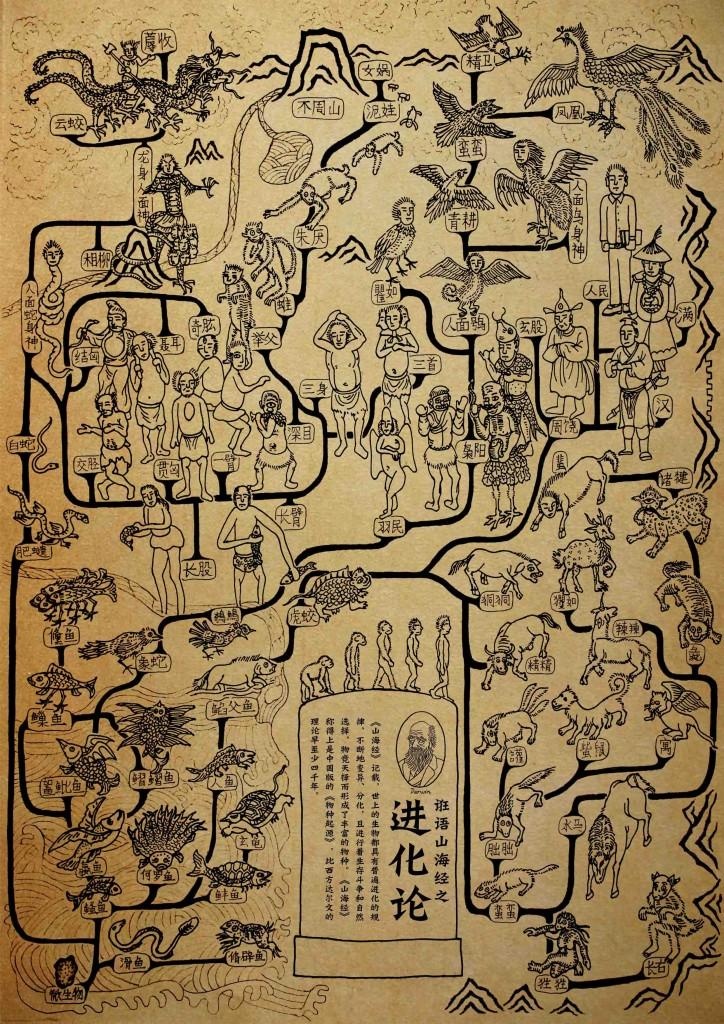 蓐收
云蛟
不周山
女娲
泥娃
精卫
凤凰
蛮蛮
青耕
人面鸟身神
龙身人面神
朱厌
相柳
人面蛇身神
瞿如
人面鸮
人民
满
汉
结匈
聂耳
奇肱
举父
三身
三首
玄股
周饶
枭阳
深目
交胫
贯匈
一臂
长臂
羽民
长股
白蛇
肥蟥
虎蛟
诸犍
狪狪
玃如
精精
辣辣
儵鱼
象蛇
䱤父鱼
鰼鰼鱼
人鱼
玄龟
何罗鱼
鮭鱼
滑鱼
脩辟鱼
微生物
䑏䑏
水马
蛮蛮
狌狌
长右
Darwin
诳语山海经之
进化论
《山海经》记载，世上的生物都具有普遍进化的规
律，不断地变异、分化，且进行着生存斗争和自然
选择，物竞天择而形成了丰富的物种。《山海经》
称得上是中国版的《物种起源》，比西方达尔文的
理论早至少四千年。